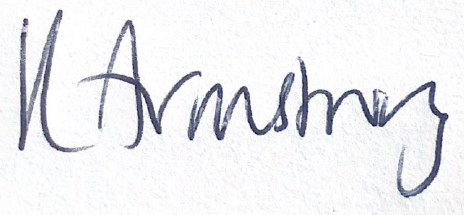 K Armstrong